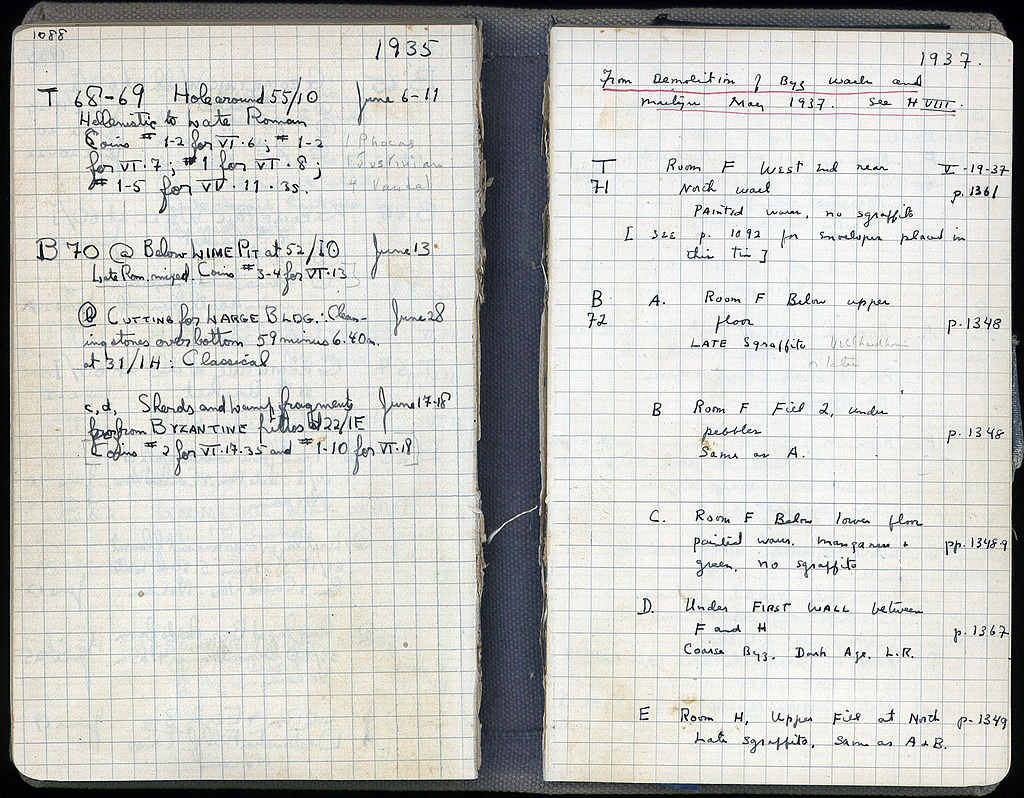 1088
1935
T 68-69 Hole around 55/10 June 6-11
Hellenistic to Late Roman
Coins # 1-2 for VI.6; # 1-2
1 Phocas
for VI.7; #1 for VI.8;
1 Justinian
# 1-5 for VI.11.35.
4 Vandal
B 70 @ Below LIME PIT at 52/10 June 13
Late Rom. mixed. Coins #3-4 for VI.13
b CUTTING for LARGE BLDG.: Clean- June 28
ing stones over bottom 59 minus 6.40m.
at 31/1H: Classical
c, d, Sherds and lamp fragments June 17-18
from BYZANTINE pithos 22/1E
[Coins # 2 for VI.17.35 and # 1-10 for VI.18]
1937.
From Demolition of Byz walls and
Martyn May 1937. See H VIII.
T Room F West end near V-19-37
71 North wall p. 1361
Painted ware, no sgraffito
[ SEE p. 1092 for envelopes placed in
this tin ]
B A. Room F Below upper
72 floor p. 1348
LATE Sgraffito
or later
B Room F Fill 2, under
pebbles p. 1348
Same as A.
C. Room F Below lower floor
painted ware. manganese + pp. 1348-9
green, no sgraffito
D. Under FIRST WALL between
F and H p. 1367
Coarse Byz. Dark Age. L.R.
E Room H, Upper Fill at North p. 1349
Late sgraffito, Same as A+B.